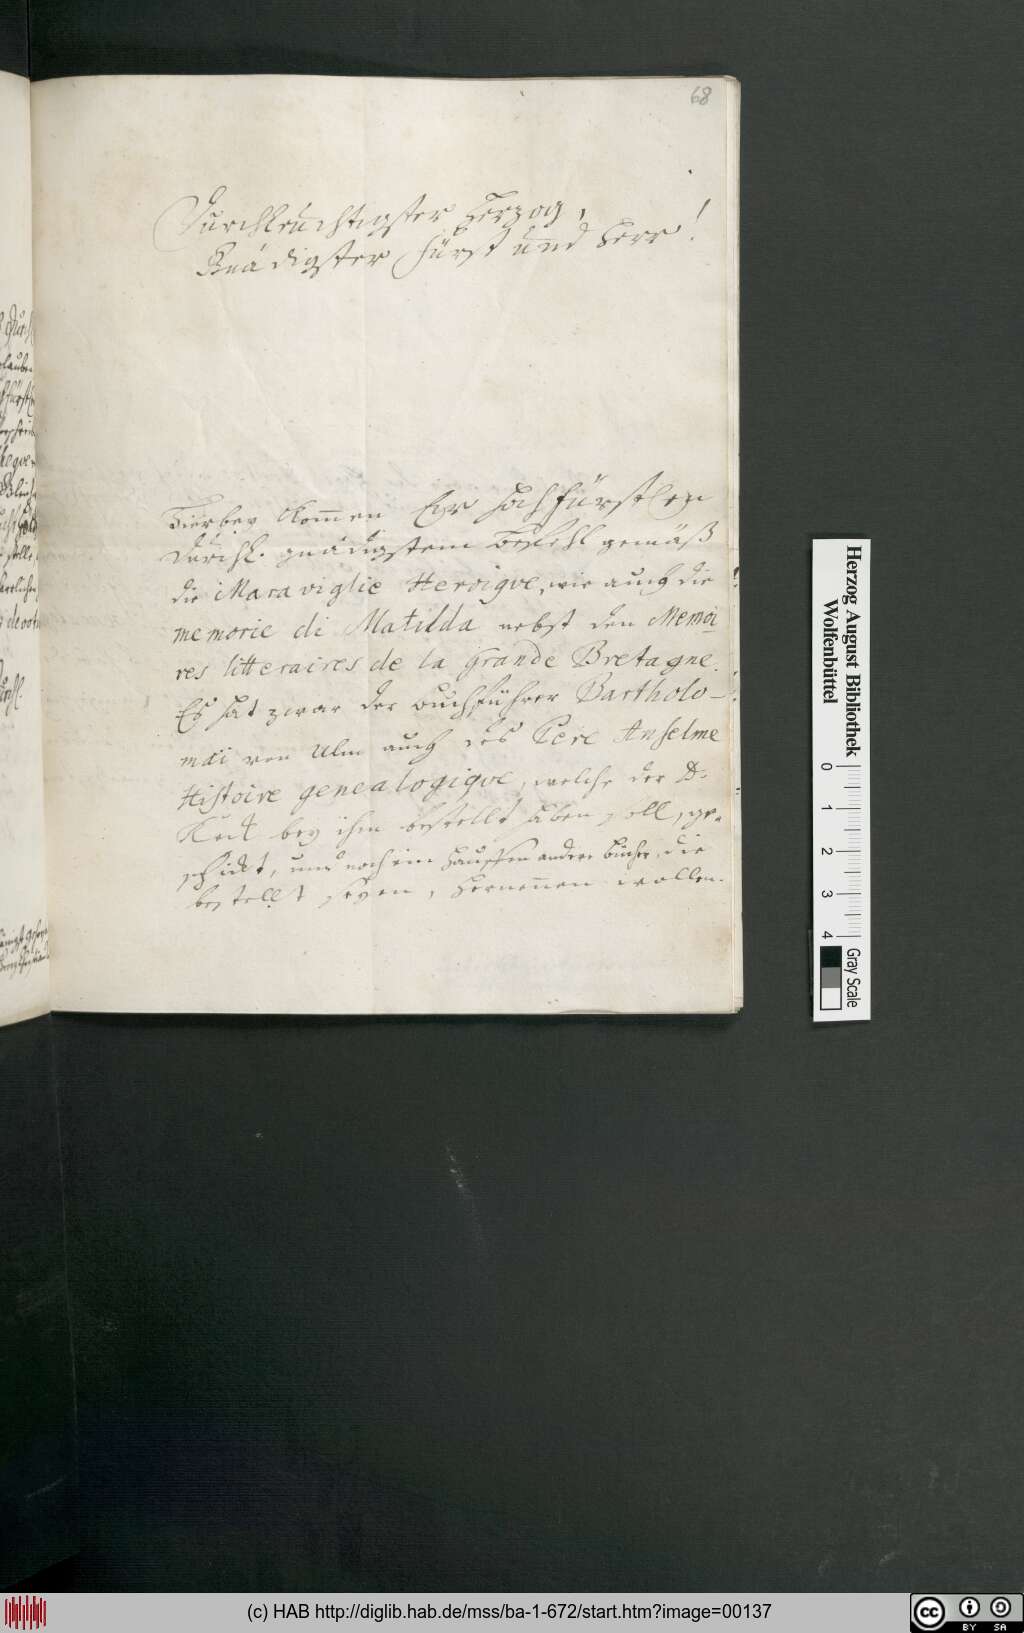 68
Durchleuchtigster Herzog,
Gnädigster Fürst und Herr!
Hierbey kommen Ewr Hochfürstlen
Durchl. gnädigstem Befehl gemäß
die Maraviglie Heroique, wie auch die
memorie di Matilda nebst den Memoi
res litteraires de la Grande Bretagne.
Es hat zwar der Buchführer Bartholo-
mäi von Ulm auch des Pere Anselme
Histoire genealogique, welche der H.
bey ihm bestellt haben soll, ge-
schickt, und noch ein Hauffen andere Bücher, die
bestellt seyen, hernennen wollen.
Herzog August Bibliothek
Wolfenbüttel
0 1 2 3 4
Gray Scale
(c) HAB http://diglib.hab.de/mss/ba-1-672/start.htm?image=00137
cc BY SA